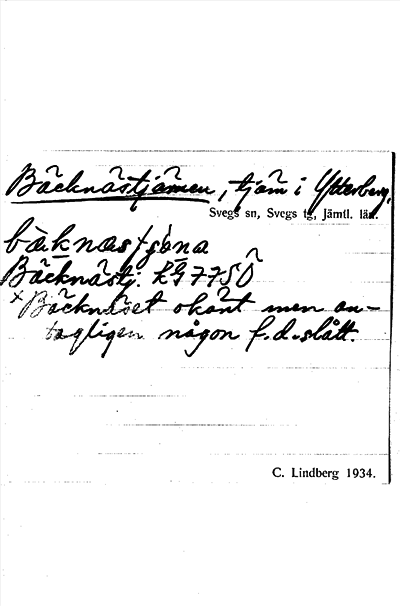 Bäcknästjärnen, tjärn i Ytterberg,
Svegs sn, Svegs tg, Jämtl. län.
Bäcknästj. kG 77SÖ
×Bäcknäset okänt men an-
tagligen någon f.d. slått.
C. Lindberg 1934.